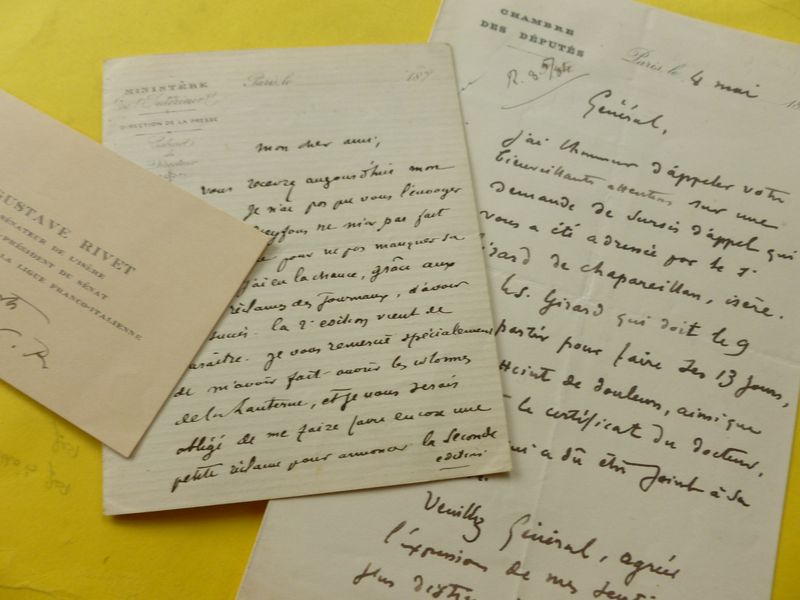 GUSTAVE RIVET
SÉNATEUR DE L'ISÈRE
PRÉSIDENT DU SÉNAT
LA LIGUE FRANCO-ITALIENNE
MINISTÈRE
de l'Intérieur
DIRECTION DE LA PRESSE
Cabinet
du
Directeur
Paris le 187
mon cher ami,
Vous recevrez aujourd'hui mon
Je n'ai pas pu vous l'envoyer
ne m'en pas fait
pour ne pas manquer sa
j'ai eu la chance, grâce aux
réclames des journaux, d'avoir
succès. la 2e edition vient de
paraître. je vous remercie spécialement
de m'avoir fait ouvrir les colonnes
de la Lanterne, et je vous serais
obligé de me faire faire encore une
petite réclame pour annoncer la seconde
edition
CHAMBRE
DES DÉPUTÉS
Paris, le 4 mai 18
Général,
J'ai l'honneur d'appeler votre
bienveillante attention sur une
demande de sursis d'appel qui
vous a été adressée par le S.
Girard de chapareillan, isère.
Le S. Girard qui doit le 9
partir pour faire ses 13 jours,
atteint de douleurs, ainsi que
le certificat du docteur,
qui a dû être joint à sa
Veuillez Général, agréer
l'expression de mes senti
plus disti